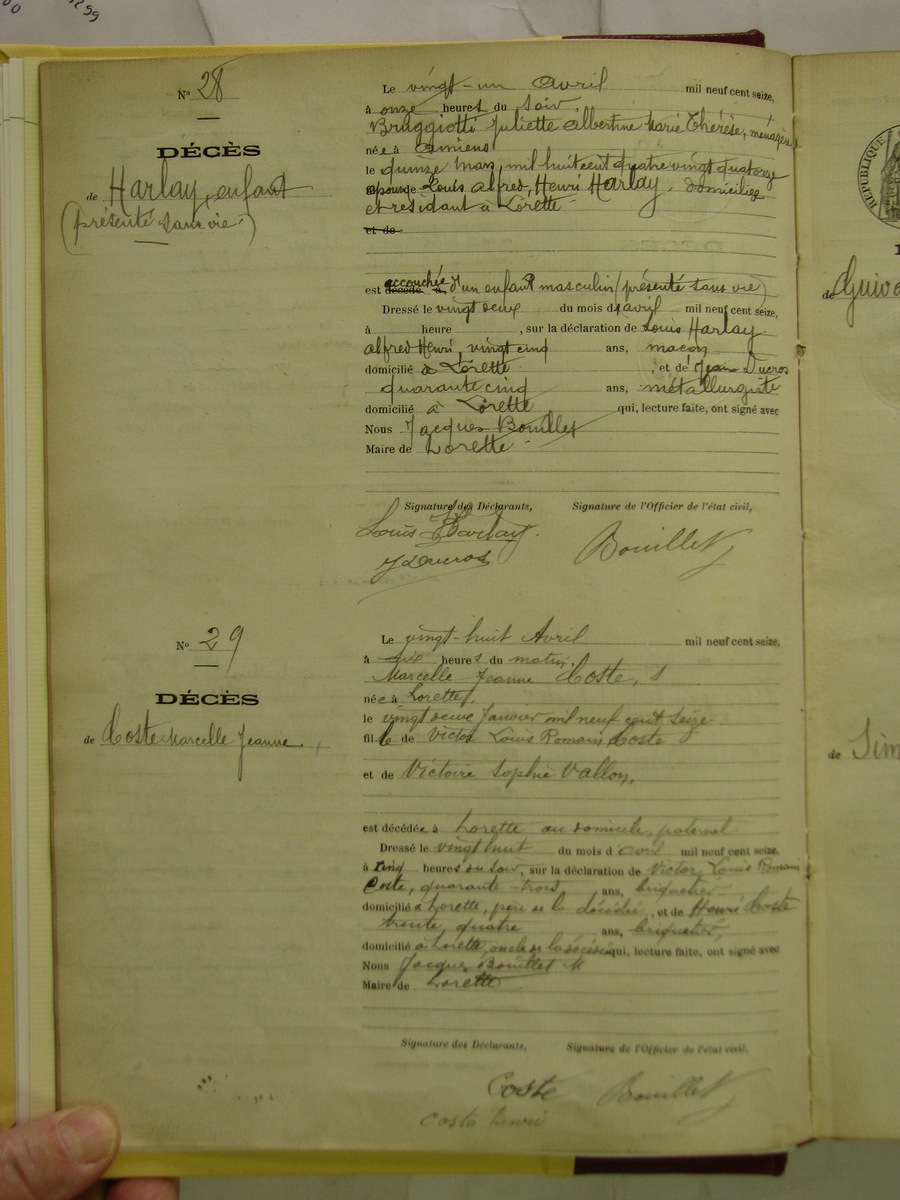 N° 28
DÉCÈS
de Harlay, enfant
(présenté sans vie)
Le vingt-un avril mil neuf cent seize,
à onze heures du soir,
Braggiotti Juliette Albertine Marie Thérèse, ménagère
née à Amiens
le quinze mars mil huit cent quatre vingt quatorze
épouse Louis Alfred Henri Harlay, domiciliée
et résidant à Lorette
et de
est décédé à accouchée d'un enfant masculin (présenté sans vie)
Dressé le vingt deux du mois d'avril mil neuf cent seize,
à heure , sur la déclaration de Louis Harlay
Alfred Henri, vingt cinq ans, maçon
domicilié à Lorette , et de Jean Ducros
quarante cinq ans, métallurgiste
domicilié à Lorette qui, lecture faite, ont signé avec
Nous Jacques Bouillet
Maire de Lorette
Signature des Déclarants, Signature de l'Officier de l'état civil,
Louis Harlay Bouillet
J Ducros
N° 29
DÉCÈS
de Coste Marcelle Jeanne
Le vingt-huit Avril mil neuf cent seize,
à six heures du matin,
Marcelle Jeanne Coste,
née à Lorette,
le vingt deux Janvier mil neuf cent seize
fille de Victor Louis Romain Coste
et de Victoire Sophie Vallon,
est décédée à Lorette au domicile paternel
Dressé le vingt huit du mois d avril mil neuf cent seize,
à cinq heures du soir, sur la déclaration de Victor Louis Romain
Coste, quarante-trois ans, briquetier
domicilié à Lorette, père de la décédée, et de Henri Coste
trente quatre ans, briquetier,
domicilié à Lorette, oncle de la décédée qui, lecture faite, ont signé avec
Nous Jacques Bouillet
Maire de Lorette
Signature des Déclarants, Signature de l'Officier de l'état civil,
Coste Bouillet
Coste henri
RÉPUBLIQUE
de
de